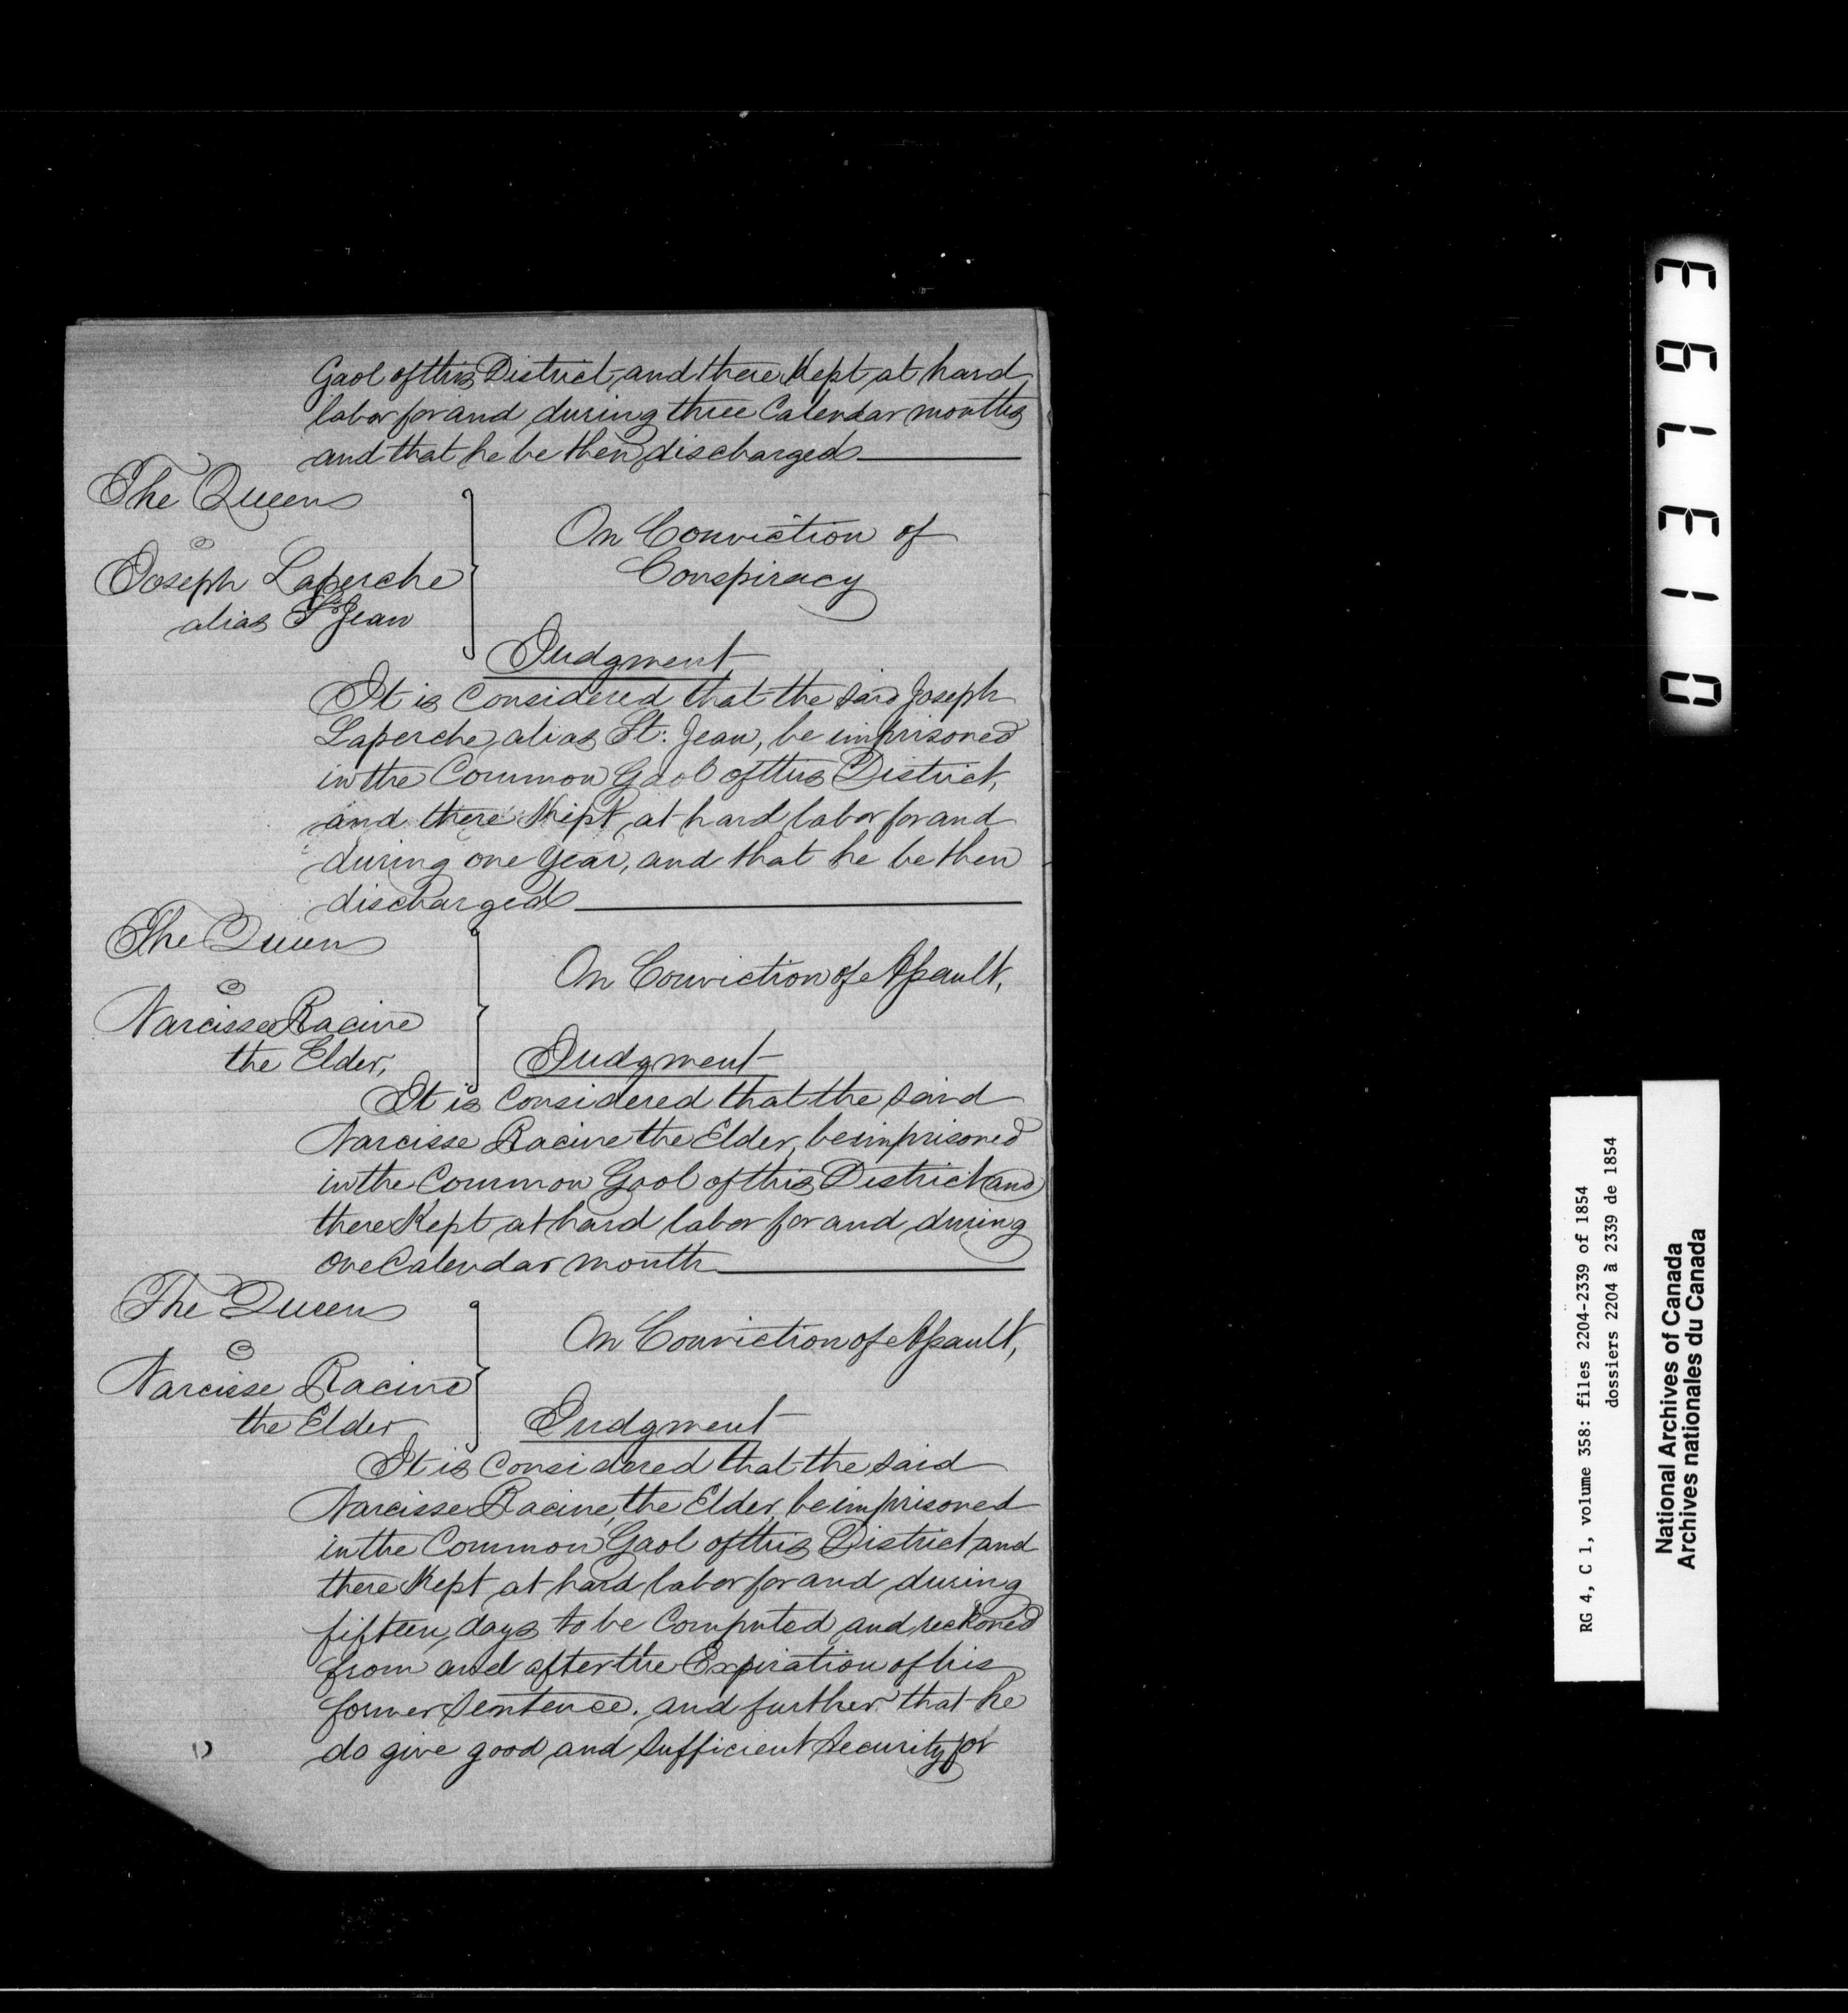 Gaol of this District, and there Kept at hard
labor for and during three Calendar months
and that he be then discharged
The Queen
Joseph Laperche
alias St Jean
On Conviction of
Conspiracy
Judgment
It is Considered that the said Joseph
Laperche, alias St: Jean, be imprisoned
in the Common Gaol of this District,
and there Kept at hard labor for and
during one Year, and that he be then
discharged
The Queen
Narcisse Racine
the Elder,
On Conviction of Assault,
Judgment
It is Considered that the said
Narcisse Racine the Elder, be imprisoned
in the Common Gaol of this District and
there Kept at hard labor for and during
one Calendar month
The Queen
Narcisse Racine
the Elder
On Conviction of Assault,
Judgment
It is Considered that the said
Narcisse Racine, the Elder, be imprisoned
in the Common Gaol of this District and
there Kept at hard labor for and during
fifteen days to be Computed and reckoned
from and after the Expiration of his
former Sentence. and further that he
do give good and sufficient Security for
013173
RG 4, C 1, volume 358: files 2204-2339 of 1854
dossiers 2204 à 2339 de 1854
National Archives of Canada
Archives nationales du Canada